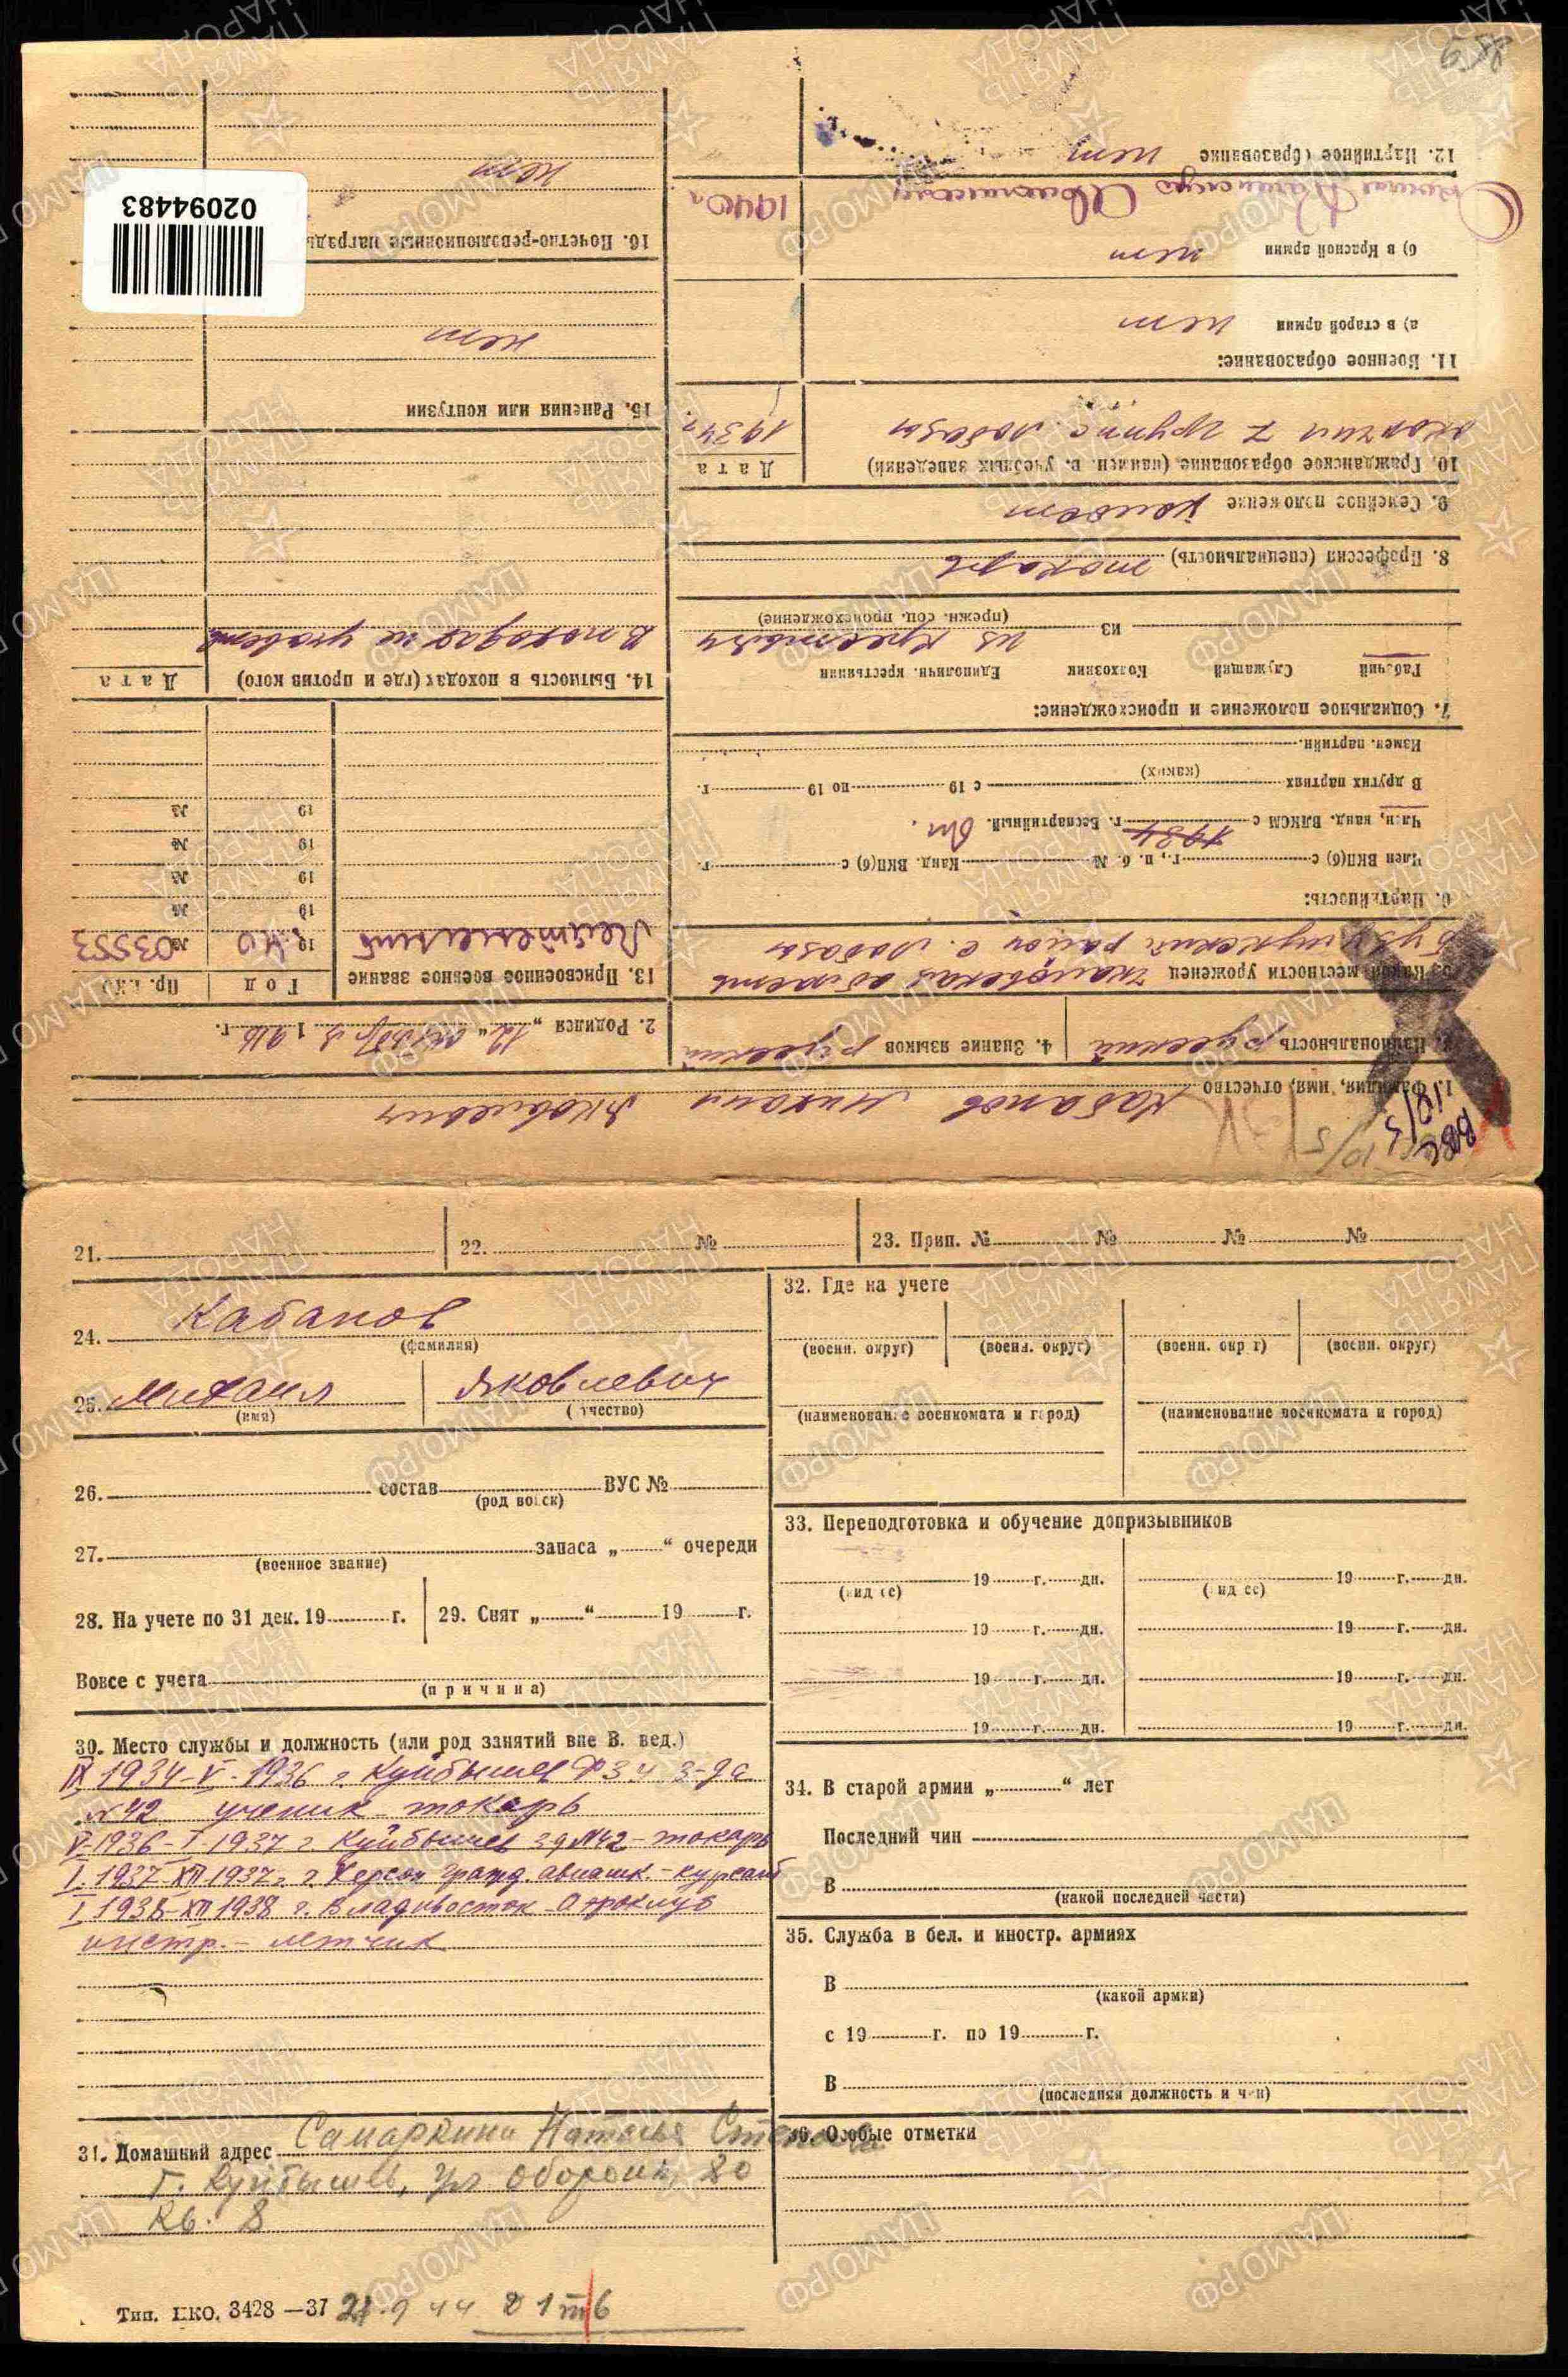 1. Фамилия, имя, отчество Кабанов Михаил Яковлевич
3. Национальность русский 4. Знание языков русский
5. Какой местности уроженец Чкаловская область
Бузулукский район с. Лобазы
6. Партийность:
Член ВКП(б) с г., п. б. № Канд. ВКП(б) с г.
Член, канд. ВЛКСМ с 1934 г. Беспартийный.
В других партиях с 19 по 19 г.
(каких)
Измен. партийн.
7. Социальное положение и происхождение:
Рабочий Служащий Колхозник Единоличн. крестьянин
из из крестьян
(прежн. соц. происхождение)
8. Профессия (специальность) токарь
9. Семейное положение холост
10. Гражданское образование (наимен. в. учебных заведений) Дата
окончил 7 групп с. Лобазы 1934 г.
11. Военное образование:
а) в старой армии нет
б) в Красной армии нет
1940 г.
12. Партийное образование нет
2. Родился „12" октября 1916 г.
13. Присвоенное военное звание Год Пр. НКО
Лейтенант 1940 №03553
19 №
19 №
19 №
19 №
14. Бытность в походах (где и против кого) Дата
В походах не участв.
15. Ранения или контузии
нет
16. Почетно-революционные награды
нет
02094483
21. 22. № 23. Прип. № № № №
24. Кабанов
(фамилия)
25. Михаил Яковлевич
(имя) (отчество)
26. состав ВУС №
(род войск)
27. запаса „ “ очереди
(военное звание)
28. На учете по 31 дек. 19 г. 29. Снят „ “ 19 г.
Вовсе с учета
(причина)
30. Место службы и должность (или род занятий вне В. вед.)
IX 1934-V-1936 г. Куйбышев ФЗУ з-да
№42 ученик токарь
V-1936-I-1937 г. Куйбышев зд №42 - токарь
I.1937-XII 1937 г. г. Херсон гражд. авиашк. - курсант
I.1938-XII 1938 г. Владивосток Аэроклуб
инстр. - летчик
31. Домашний адрес Самаркина Наталья
г. Куйбышев, ул Обороны, 80
Кв. 8
32. Где на учете
(военн. округ) (военн. округ) (военн. округ) (военн. округ)
(наименование военкомата и город) (наименование военкомата и город)
33. Переподготовка и обучение допризывников
19 г. дн. 19 г. дн.
(вид ее) (вид ее)
19 г. дн. 19 г. дн.
19 г. дн. 19 г. дн.
19 г. дн. 19 г. дн.
34. В старой армии „ “ лет
Последний чин
В
(какой последней части)
35. Служба в бел. и иностр. армиях
В
(какой армии)
с 19 г. по 19 г.
В
(последняя должность и чин)
36. Особые отметки
Тип. НКО. 3428—37